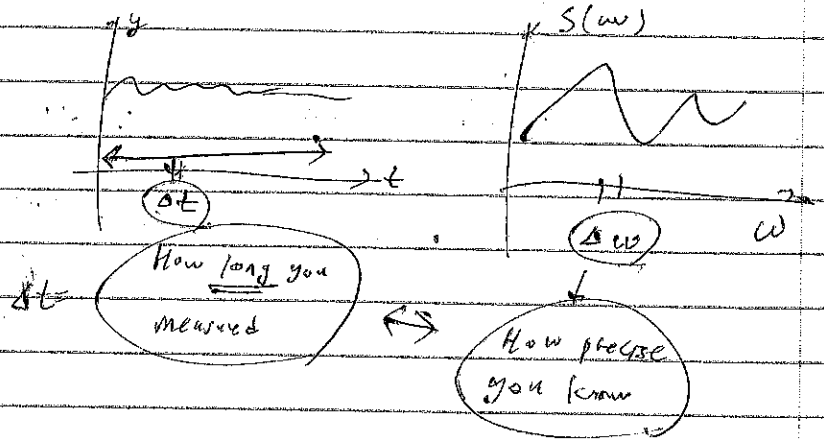 y
S(ω)
t
Δt
Δω
ω
How long you
measured
Δt =
How precise
you know